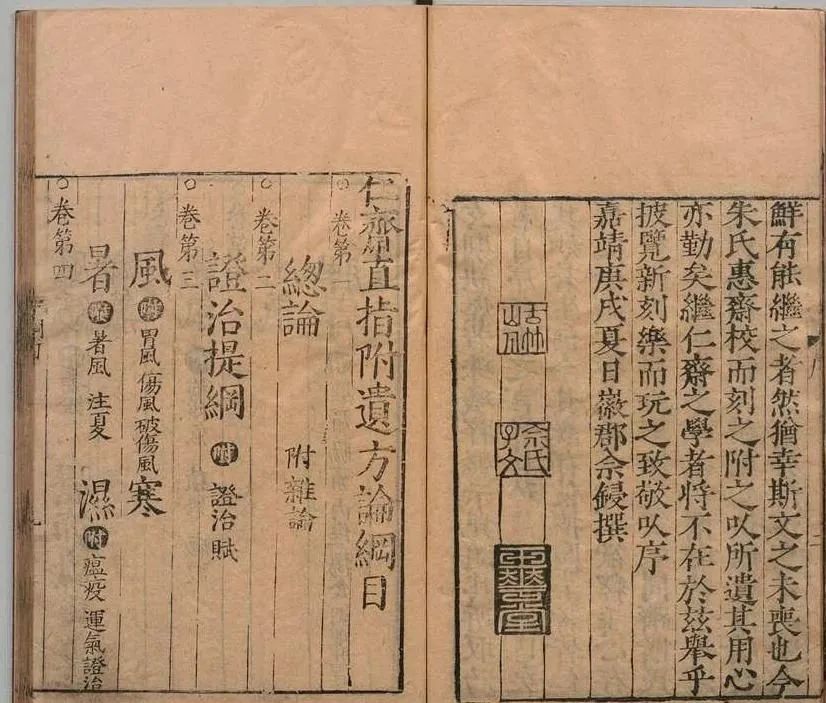 鮮有能繼之者然猶幸斯文之未喪也今
朱氏惠齋校而刻之附之以所遺其用心
亦勤矣繼仁齋之學者將不在於茲舉乎
披覽新刻樂而玩之致敬以序
嘉靖庚戌夏日徽郡佘鋟撰
仁齋直指附遺方論綱目
○卷第一
總論 附雜論
○卷第二
證治提綱 附 證治賦
○卷第三
風 附 胃風 傷風 破傷風 寒
○卷第四
暑 附 暑風 注夏 濕 附 瘟疫 運氣證治